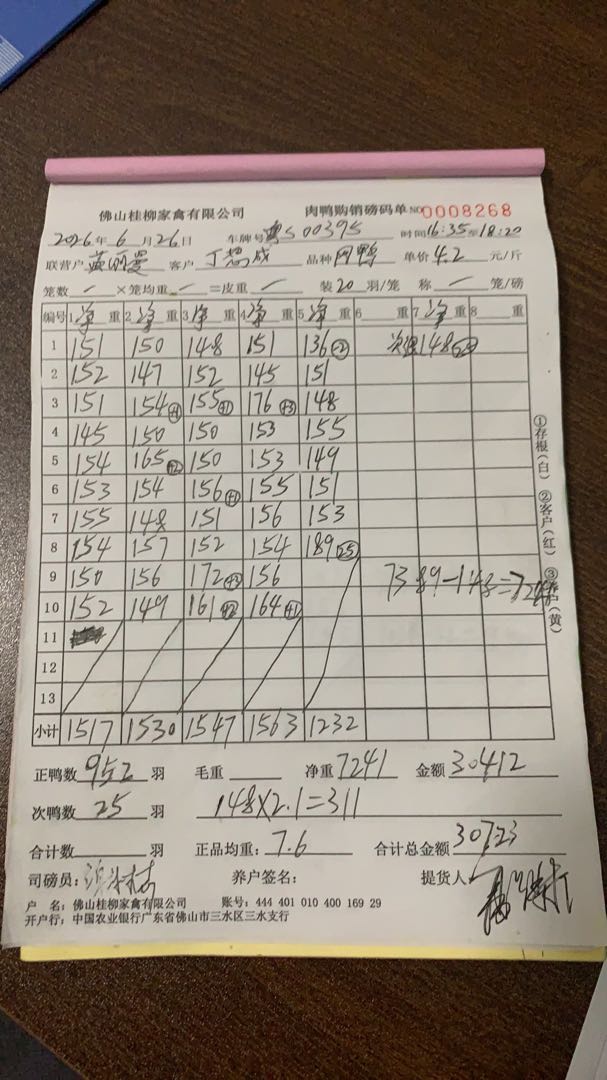 佛山桂柳家禽有限公司 肉鸭购销磅码单 NO 0008268
2026年 6月 26日 车牌号 粤S00395 时间 16:35至18:20
联营户 客户 品种 单价 4.2 元/斤
笼数 一 ×笼均重 一 =皮重 一 装 20 羽/笼 称 一 笼/磅
编号 1 净 重 2 净 重 3 净 重 4 净 重 5 净 重 6 重 7 净 重 8 重
1 151 150 148 151 136 148
2 152 147 152 145 151
3 151 154 (+1) 155 (+1) 176 (+3) 148
4 145 150 150 153 155
5 154 165 (+2) 150 153 149
6 153 154 156 (+1) 155 151
7 155 148 151 156 153
8 154 157 152 154 189 (25)
9 150 156 172 (+3) 156 7389-148=7241
10 152 149 161 (+2) 164 (+1)
11
12
13
小计 1517 1530 1547 1563 1232
正鸭数 952 羽 毛重 净重 7241 金额 30412
次鸭数 25 羽 148×2.1=311
合计数 羽 正品均重: 7.6 合计总金额 30723
司磅员: 养户签名: 提货人
户 名: 佛山桂柳家禽有限公司 账号: 444 401 010 400 169 29
开户行: 中国农业银行广东省佛山市三水区三水支行
①存根(白) ②客户(红) ③养户(黄)